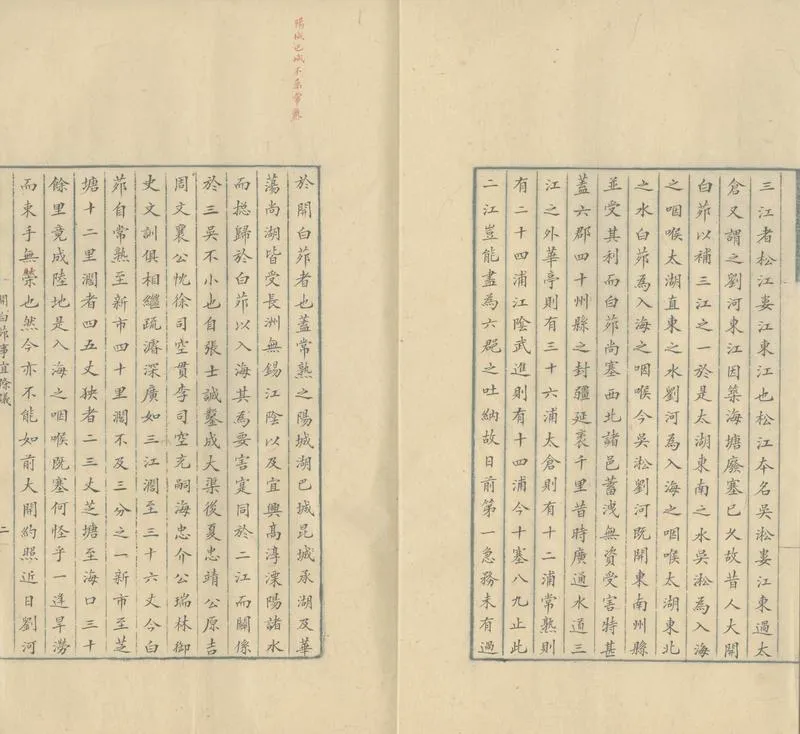 三江者松江婁江東江也松江本名吳淞婁江東過太
倉又謂之劉河東江因築海塘廢塞已久故昔人大開
白茆以補三江之一於是太湖東南之水吳淞為入海
之咽喉太湖直東之水劉河為入海之咽喉太湖東北
之水白茆為入海之咽喉今吳淞劉河既開東南州縣
並受其利而白茆尚塞西北諸邑蓄洩無資受害特甚
蓋六郡四十州縣之封疆延袤千里昔時廣通水道三
江之外華亭則有三十六浦太倉則有十二浦常熟則
有二十四浦江陰武進則有十四浦今十塞八九止此
二江豈能盡為六郡之吐納故目前第一急務未有過
陽城巴城不系常熟
於開白茆者也蓋常熟之陽城湖巴城昆城承湖及華
蕩尚湖皆受長洲無錫江陰以及宜興高淳溧陽諸水
而挖歸於白茆以入海其為要害寔同於二江而關係
於三吳不小也自張士誠鑿成大渠後夏忠靖公原吉
周文襄公忱徐司空貫李司空充嗣海忠介公瑞林御
史文訓俱相繼疏濬深廣如三江濶至三十六丈今白
茆自常熟至新市四十里濶不及三分之一新市至芝
塘十二里濶者四五丈狹者二三丈芝塘至海口三十
餘里竟成陸地是入海之咽喉既塞何怪乎一逢旱澇
而束手無策也然今亦不能如前大開約照近日劉河
開白茆事宜條議
二